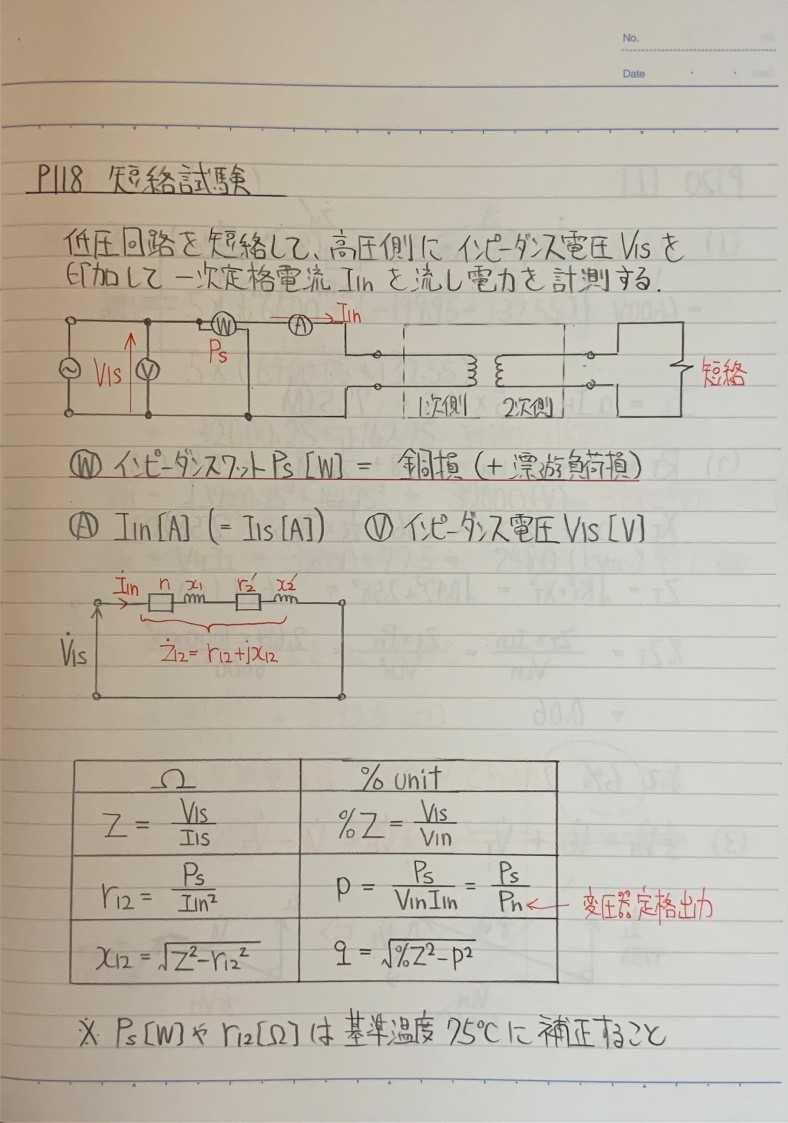 No.
Date
P118 短絡試験
低圧回路を短絡して、高圧側に インピーダンス電圧 V1sを
印加して 一次定格電流 I1n を流し電力を計測する.
I1n
W
A
Ps
V1s
V
1次側
2次側
短絡
Ⓦ インピーダンスワット Ps [W] = 銅損 (+ 漂遊負荷損)
Ⓐ I1n [A] (= I1s [A]) Ⓥ インピーダンス電圧 V1s [V]
İ1n r1 x1 r2' x2'
V̇1s
Ż12 = r12 + jx12
Ω % unit
Z = V1s / I1s %Z = V1s / V1n
r12 = Ps / I1n² p = Ps / V1n I1n = Ps / Pn ← 変圧器定格出力
x12 = √Z² - r12² q = √%Z² - p²
※ Ps [W] や r12 [Ω] は 基準温度 75℃ に 補正すること